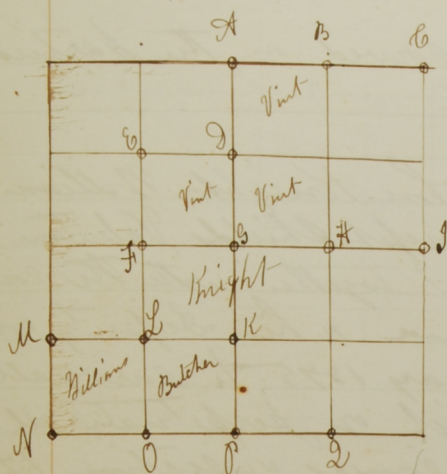 A B C
Vint
E D
Vint Vint
F G H I
Knight
M L K
Williams Butcher
N O P Q